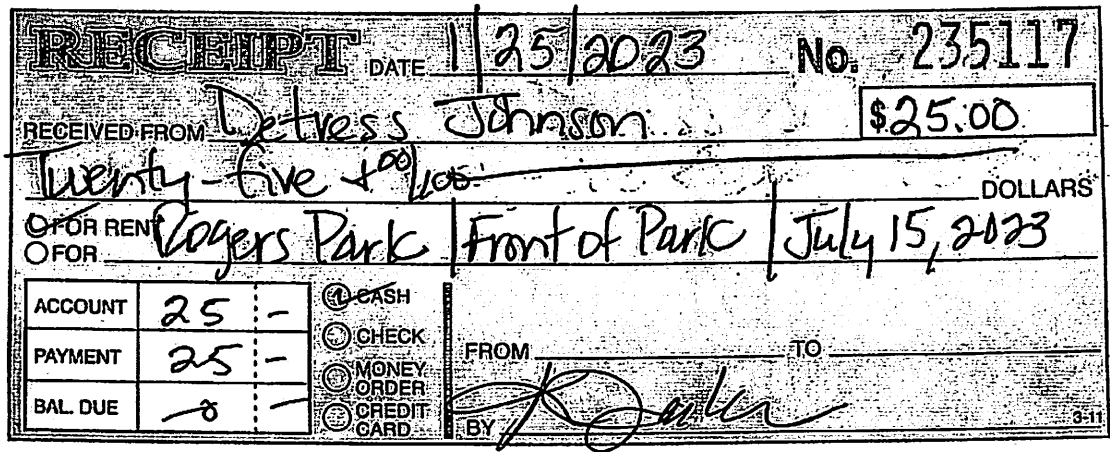 RECEIPT DATE 1/25/2023 No. 235117
RECEIVED FROM Detress Johnson $25.00
Twenty-five + 00/100 DOLLARS
FOR RENT
FOR Rogers Park | Front of Park | July 15, 2023
ACCOUNT 25 - CASH
CHECK
PAYMENT 25 - FROM TO
MONEY ORDER
BAL. DUE 0 - CREDIT CARD BY
3-11